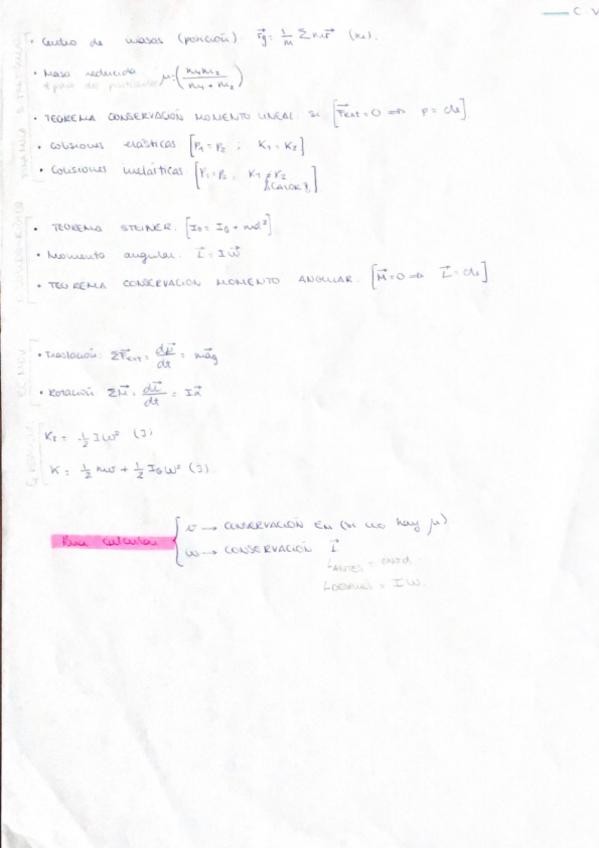 C V
• Centro de masas (posición) r⃗g = 1/m Σ m r⃗ (m).
• Masa reducida μ = (m₁m₂ / m₁ + m₂)
• TEOREMA CONSERVACIÓN MOMENTO LINEAL. Si [F⃗ext = 0 ⇒ p = cte]
• Colisiones elásticas [P₁ = P₂ ; K₁ = K₂]
• Colisiones inelásticas [P₁ = P₂ ; K₁ ≠ K₂
• TEOREMA STEINER. [I₀ = I_G + md²]
• Momento angular. L⃗ = I ω⃗
• TEOREMA CONSERVACION MOMENTO ANGULAR. [M⃗ = 0 ⇒ L⃗ = cte]
• Traslación: ΣF⃗ext = dp⃗/dt = ma⃗g
• Rotación ΣM⃗ = dL⃗/dt = Iα⃗
½ Iω² (J)
K = ½ mv + ½ I_G ω² (J)
Para calcular
v → CONSERVACIÓN Em (si no hay μ)
ω → CONSERVACIÓN L⃗
L ANTES =
L DESPUES = I ω.